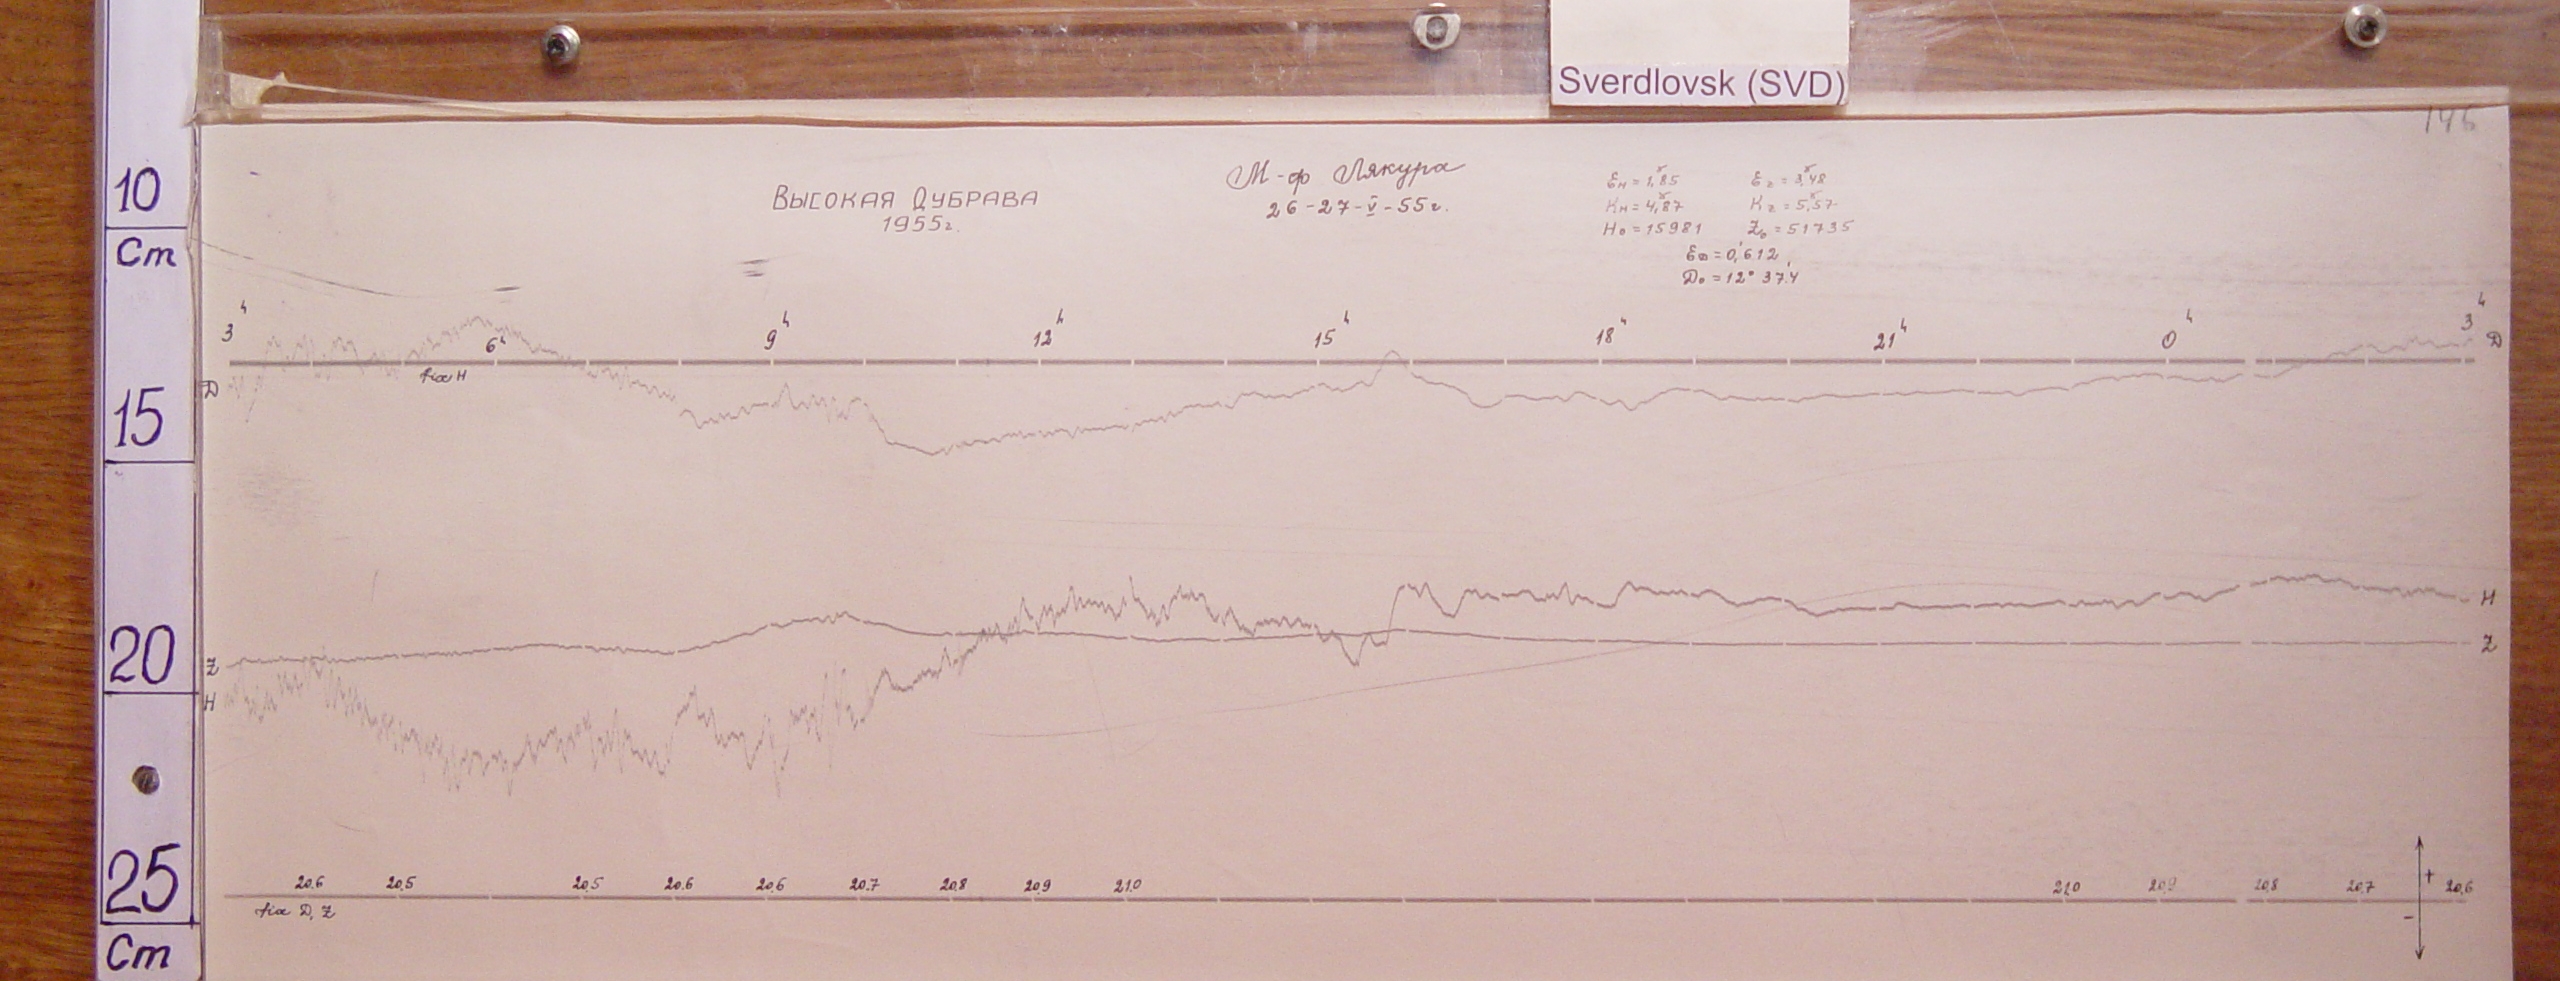 Sverdlovsk (SVD)
146
10
Cm
15
20
25
Cm
Высокая Дубрава
1955г.
М-ф Лякура
26-27-V-55г.
Ен = 1,85 Еz = 3,48
Кн = 4,87 Кz = 5,57
Н₀ = 15981 Z₀ = 51735
ЕD = 0,612
D₀ = 12° 37,4
3ʰ 6ʰ 9ʰ 12ʰ 15ʰ 18ʰ 21ʰ 0ʰ 3ʰ
D D
fix H
H
Z Z
H
20.6 20.5 20.5 20.6 20.6 20.7 20.8 20.9 21.0 21.0 20.9 20.8 20.7 20.6
+
fix D, Z
-